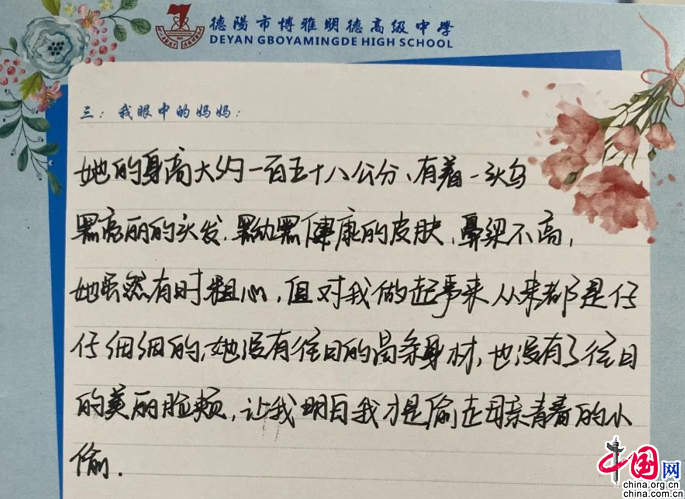 德陽市博雅明德高级中学
DEYANG GBOYAMINGDE HIGH SCHOOL
三：我眼中的妈妈：
她的身高大约一百五十八公分、有着一头乌
黑亮丽的头发，黑黝黑健康的皮肤，鼻梁不高，
她虽然有时粗心，但对我做起事来从来都是仔
仔细细的，她没有往日的高条身材，也没有了往日
的美丽脸颊，让我明白我才是偷走母亲青春的小
偷．
中国网
china.org.cn
china.com.cn